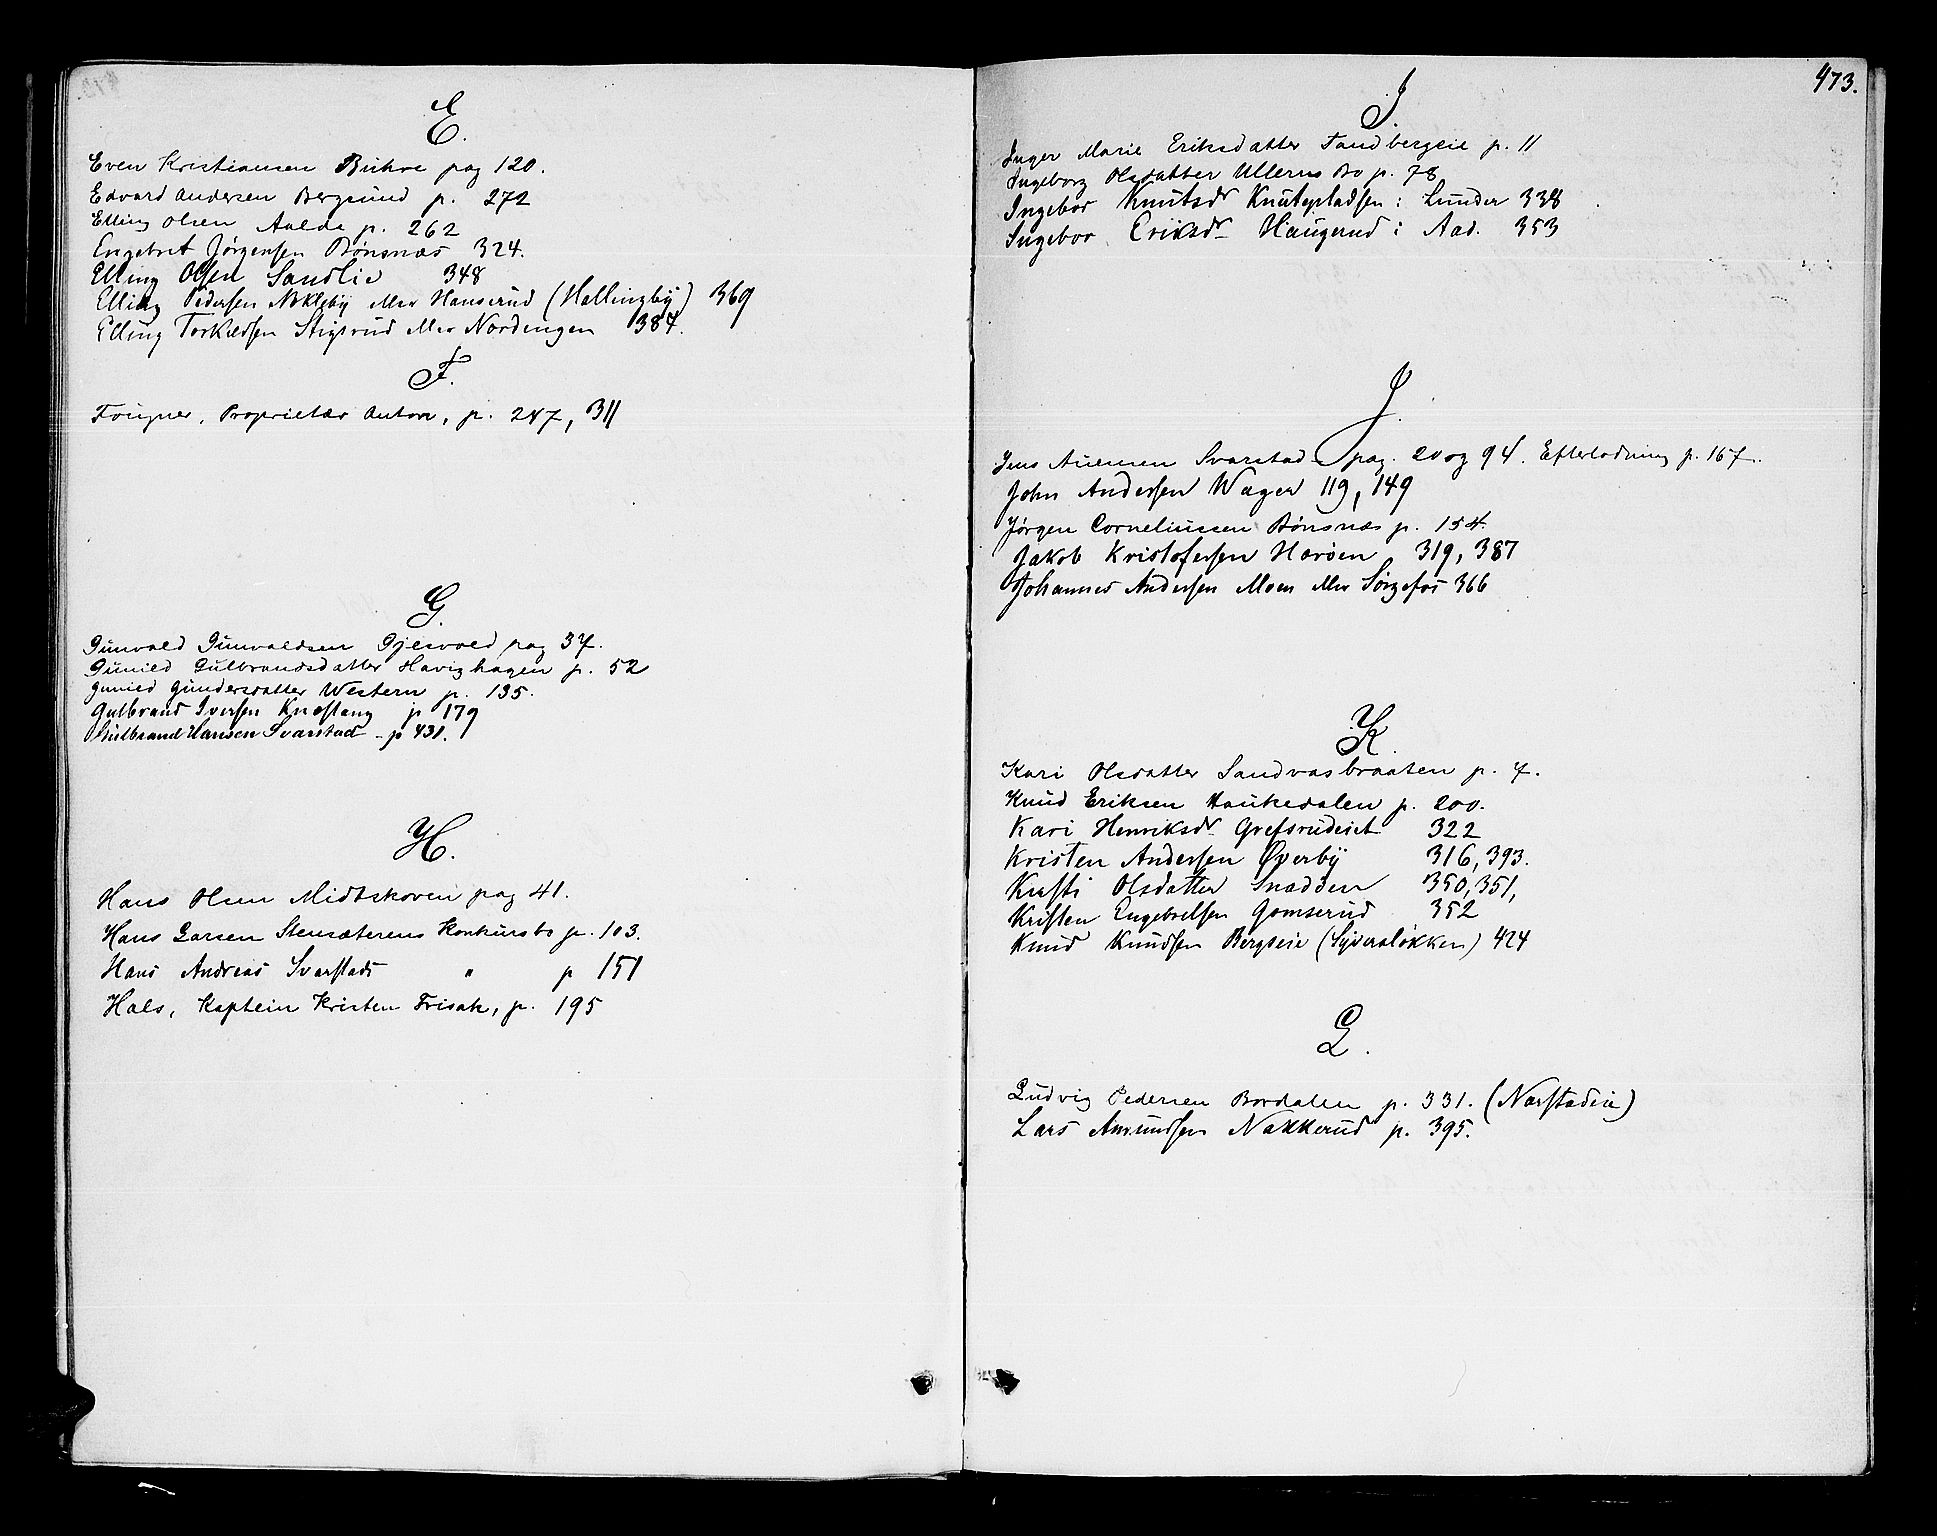 E.
Even Kristiansen Bukve pag 120.
Edvard Andersen Bergsund p. 272
Elling Olsen Aalde p. 262
Engebret Jørgensen Bønsnæs 324.
Elling Olsen Sandlie 348
Elling Pedersen Nokleby eller Hanserud (Hallingby) 369
Elling Torkildsen Stigsrud eller Nordengen 384.
F.
Fougner, Proprietær Anton, p. 247, 311
G.
Gunvald Gunvaldsen Gjesvold pag 37.
Gunild Gulbrandsdatter Havighagen p. 52
Gunild Gundersdatter Western p. 135.
Gulbrand Iversen Knestang p 179
Gulbrand Hansen Svarstad - p 431.
H.
Hans Olsen Midtskoven pag 41.
Hans Larsen Stensæterens Konkursbo p. 103.
Hans Andreas Svarstads " p 151
Hals, Kaptein Kristen Frisak, p. 195
473.
I.
Inger Marie Eriksdatter Tandbergeie p. 11
Ingeborg Olsdatter Ullerns Bo p. 78
Ingebor Knutsdr Knutepladsen i Lunder 338
Ingebor Eriksdr Haugerud i Aad. 353
J.
Jens Svarstad pag. 20 og 94. Efterlodning p. 167.
John Andersen Wager 119, 149
Jørgen Corneliussen Bønsnæs p. 154.
Jakob Kristofersen Hærøen 319, 387
Johannes Andersen Moen eller Sørgefos 366
K.
Kari Olsdatter Sandvasbraaten p. 7.
Knud Eriksen Haukedalen p. 200.
Kari Henriksdr Grefsrudeiet 322
Kristen Andersen Øverby 316, 393.
Kristi Olsdatter Snadden 350, 351,
Kristen Engebretsen Gomserud 352
Knud Knudsen Bergseie (Syversløkken) 424
L.
Ludvig Pedersen Bordalen p. 331. (Narstadeie)
Lars Amundsen Nakkerud p. 395.